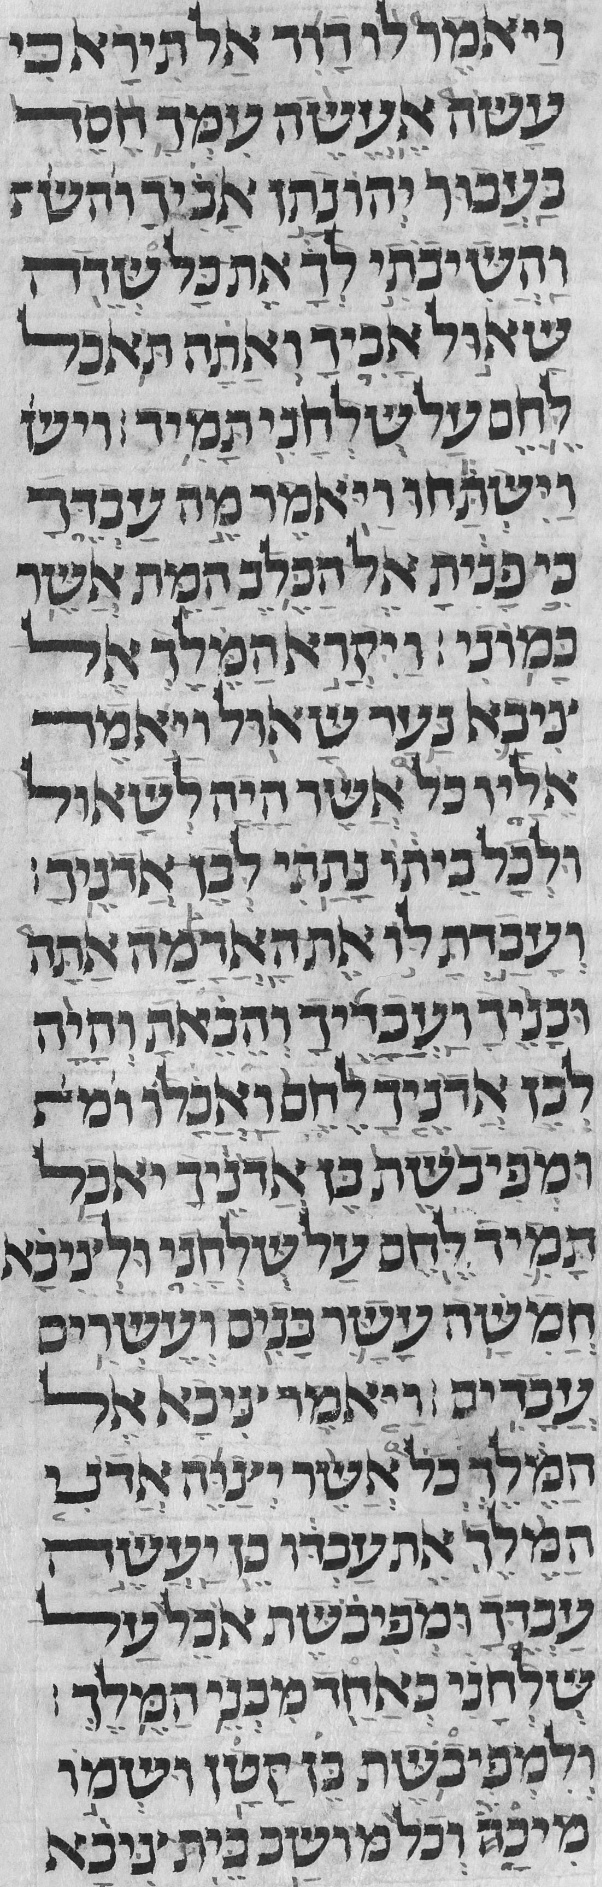 וַיֹּאמֶר לוֹ דָוִד אַל תִּירָא כִּי
עָשֹׂה אֶעֱשֶׂה עִמְּךָ חֶסֶד
בַּעֲבוּר יְהוֹנָתָן אָבִיךָ והש
וַהֲשִׁיבֹתִי לְךָ אֶת כָּל שְׂדֵה
שָׁאוּל אָבִיךָ וְאַתָּה תֹּאכַל
לֶחֶם עַל שֻׁלְחָנִי תָּמִיד׃ ויש
וַיִּשְׁתַּחוּ וַיֹּאמֶר מֶה עַבְדֶּךָ
כִּי פָנִיתָ אֶל הַכֶּלֶב הַמֵּת אֲשֶׁר
כָּמוֹנִי׃ וַיִּקְרָא הַמֶּלֶךְ אֶל
צִיבָא נַעַר שָׁאוּל וַיֹּאמֶר
אֵלָיו כֹּל אֲשֶׁר הָיָה לְשָׁאוּל
וּלְכָל בֵּיתוֹ נָתַתִּי לְבֶן אֲדֹנֶיךָ׃
וְעָבַדְתָּ לּוֹ אֶת הָאֲדָמָה אַתָּה
וּבָנֶיךָ וַעֲבָדֶיךָ וְהֵבֵאתָ וְהָיָה
לְבֶן אֲדֹנֶיךָ לֶּחֶם וַאֲכָלוֹ ומ
וּמְפִיבֹשֶׁת בֶּן אֲדֹנֶיךָ יֹאכַל
תָּמִיד לֶחֶם עַל שֻׁלְחָנִי וּלְצִיבָא
חֲמִשָּׁה עָשָׂר בָּנִים וְעֶשְׂרִים
עֲבָדִים׃ וַיֹּאמֶר צִיבָא אֶל
הַמֶּלֶךְ כְּכֹל אֲשֶׁר יְצַוֶּה אֲדֹנִי
הַמֶּלֶךְ אֶת עַבְדּוֹ כֵּן יַעֲשֶׂה
עַבְדֶּךָ וּמְפִיבֹשֶׁת אֹכֵל עַל
שֻׁלְחָנִי כְּאַחַד מִבְּנֵי הַמֶּלֶךְ׃
וְלִמְפִיבֹשֶׁת בֵּן קָטָן וּשְׁמוֹ
מִיכָה וְכֹל מוֹשַׁב בֵּית צִיבָא